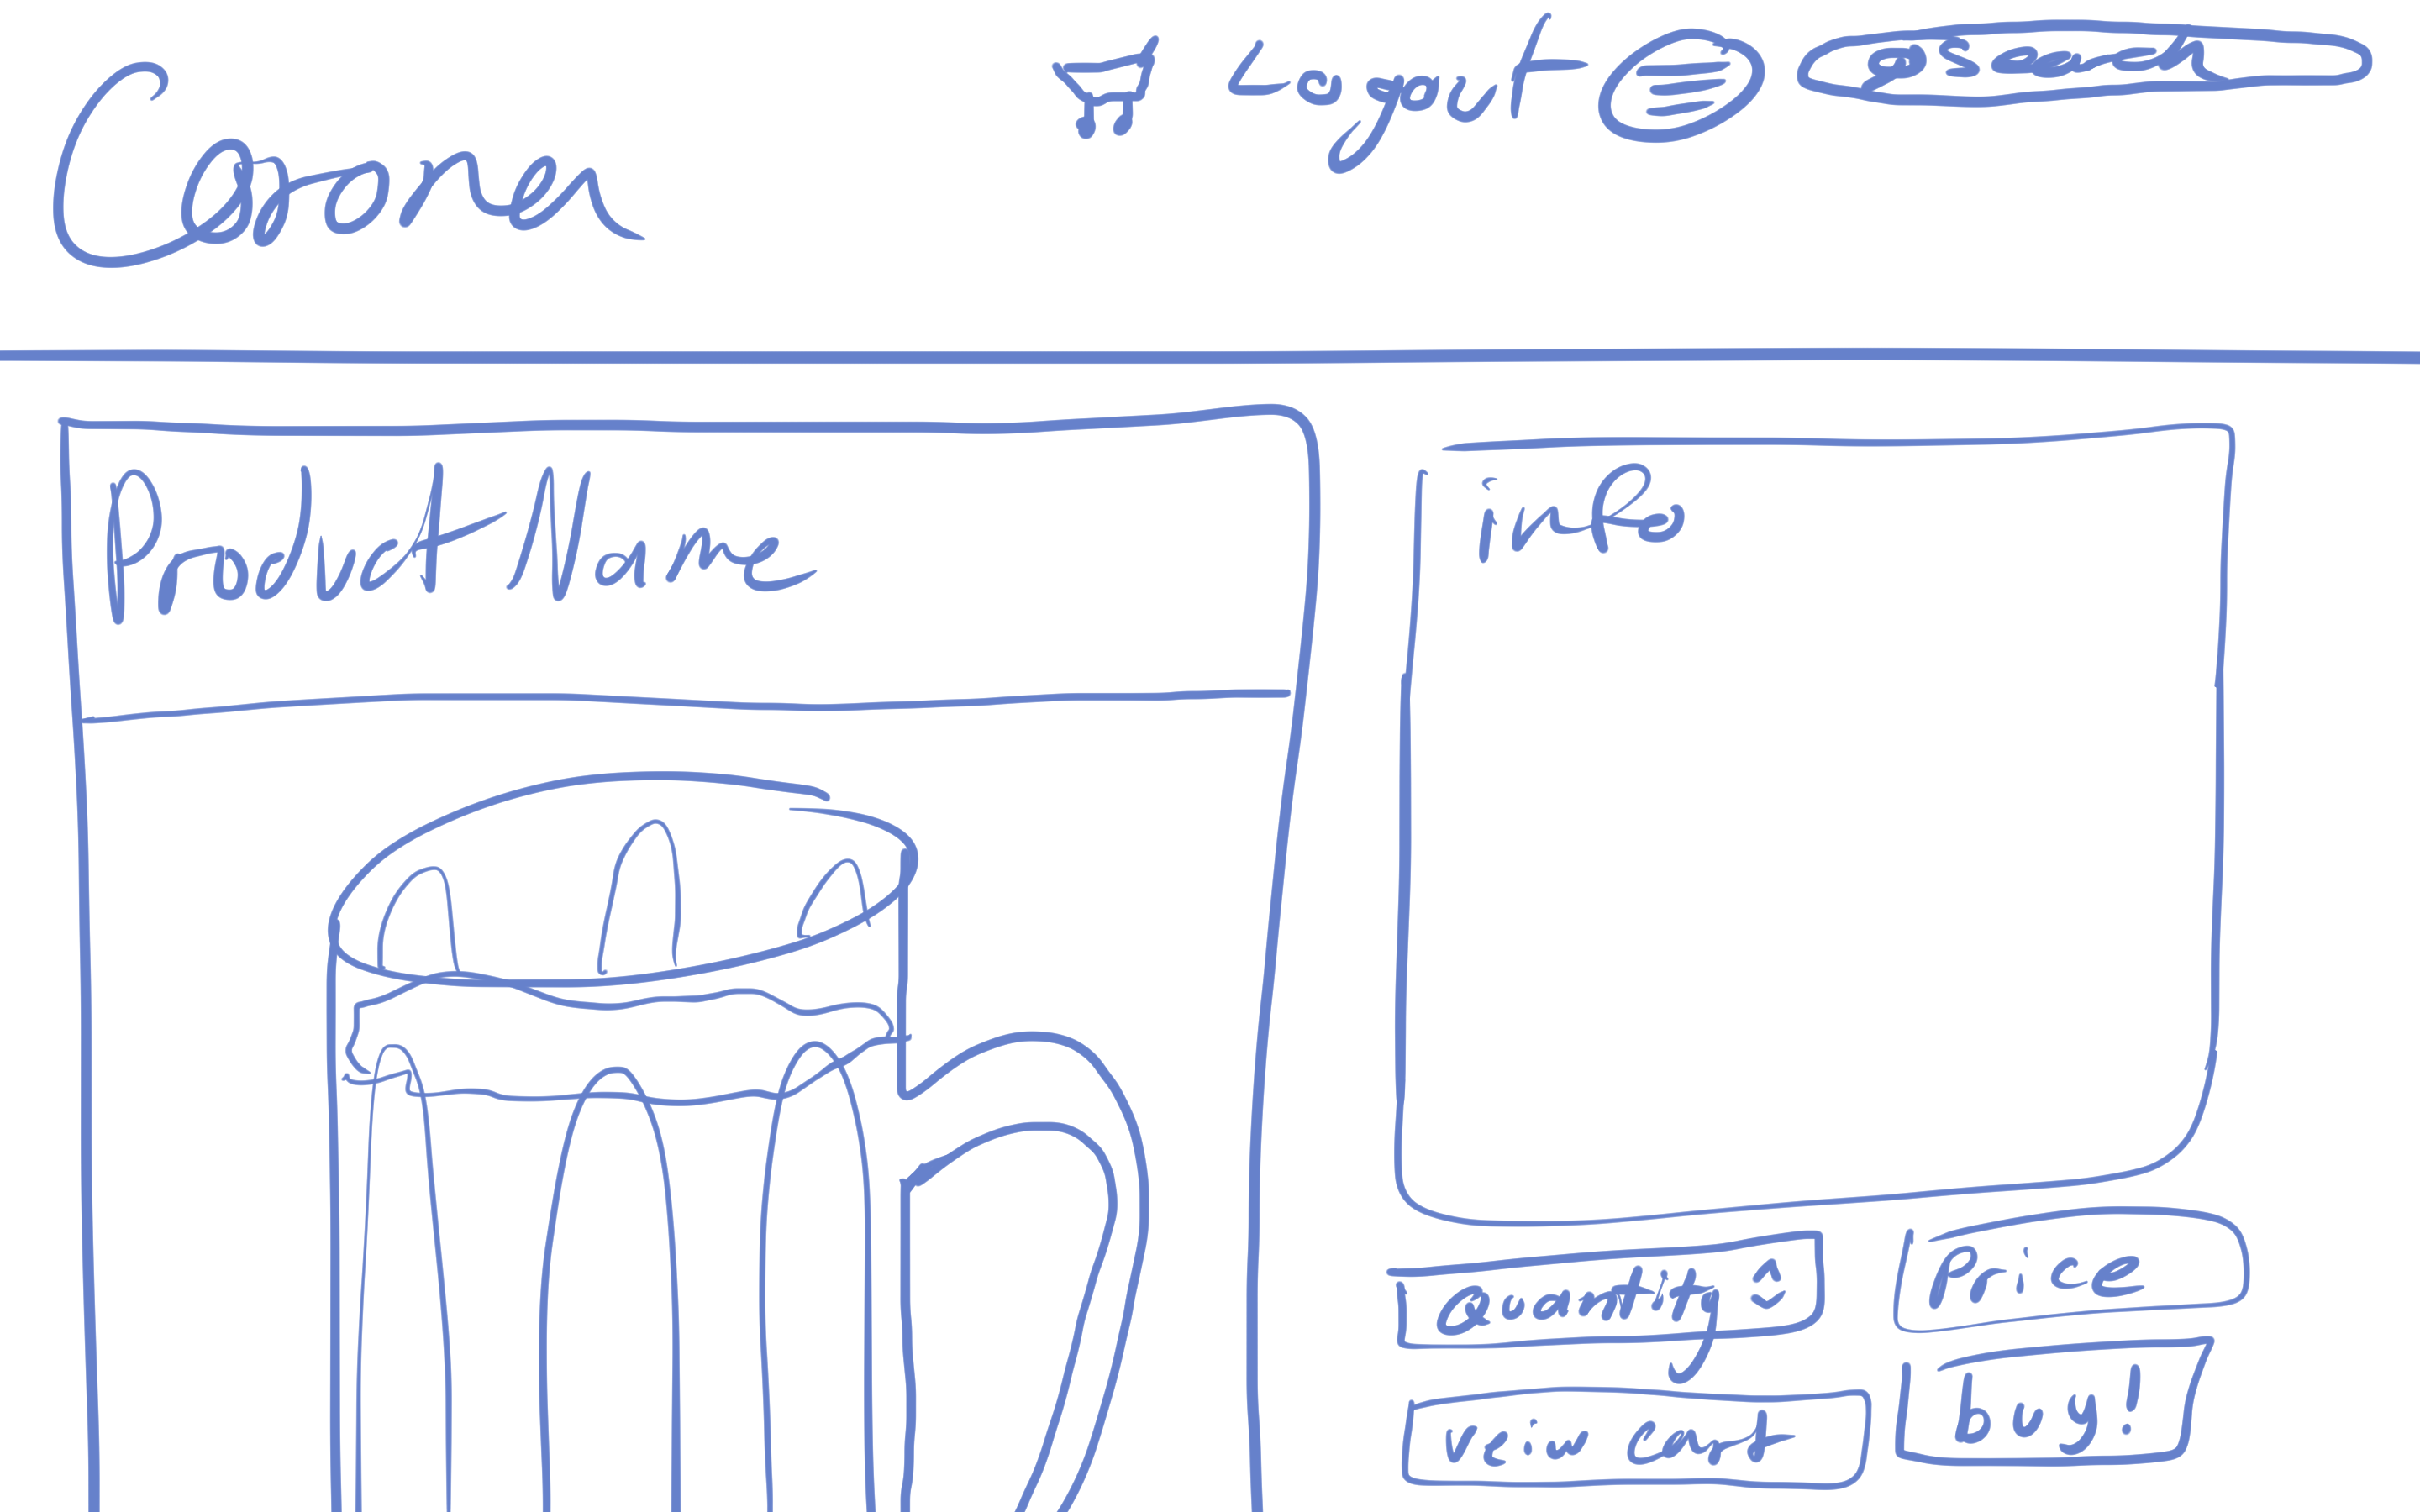 Logout
Search
Product Name
info
Quantity
Price
Veiw cart
buy!